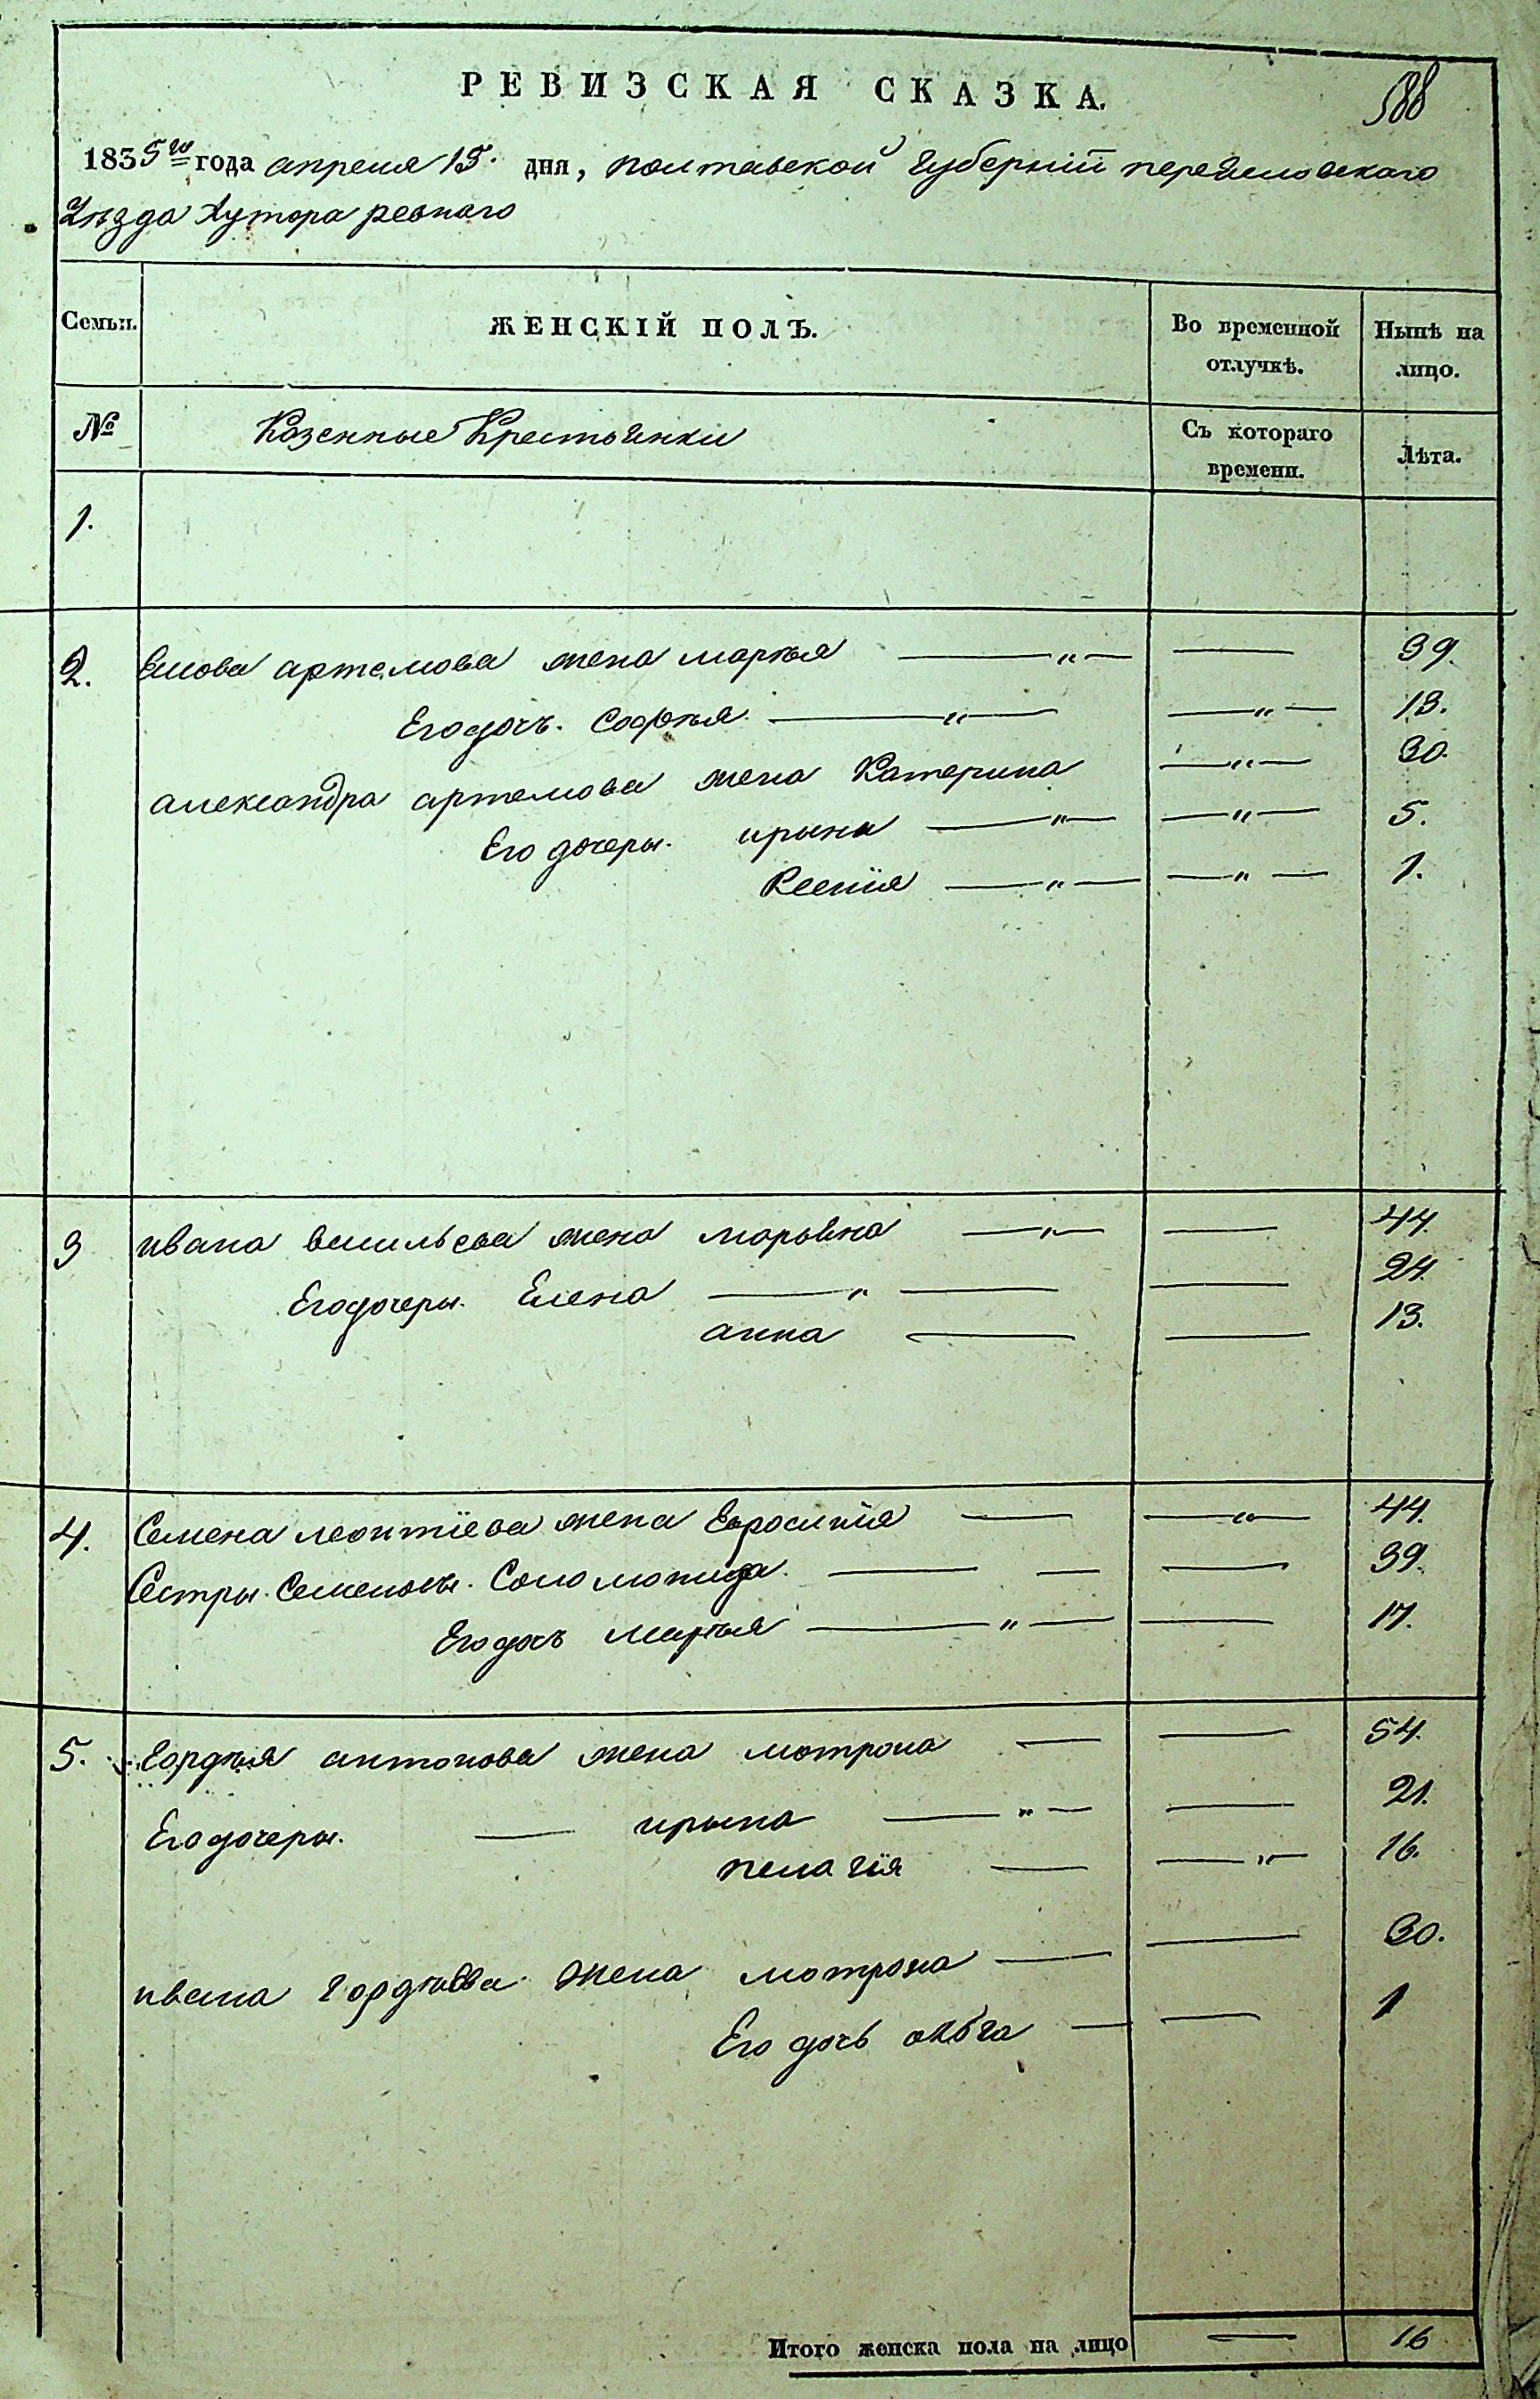 РЕВИЗСКАЯ СКАЗКА.
588
1835го года апреля 15. дня, полтавской губернїи переясловскаго
Уѣзда Хутора ревнаго
Семьи.
ЖЕНСКІЙ ПОЛЪ.
Во временной отлучкѣ.
Нынѣ на лицо.
№
Козенные Крестьянки
Съ котораго времени.
Лѣта.
1.
2. артемова жена марья — „ — — 39.
Его дочь. Софья — „ — — „ — 13.
александра артемова жена Катерина — „ — 30.
Его дочеры. ирына — „ — — „ — 5.
Ксенїя — „ — — „ — 1.
3 ивана васильева жена марьяна — „ — — 44.
Его дочеры. Елена — „ — — 24.
анна — — 13.
4. Семена леонтїева жена Евросинїя — — „ — 44.
Сестры. Семеновы. Соломонида — — — 39.
Его дочь марья — „ — — 17.
5. Гордѣя антонова жена мотрона — — 54.
Его дочеры. — ирына — „ — — 21.
пелагїя — — „ — 16.
ивана гордѣева жена мотрона — — 30.
Его дочь ольга — — 1
Итого женска пола на лицо — 16